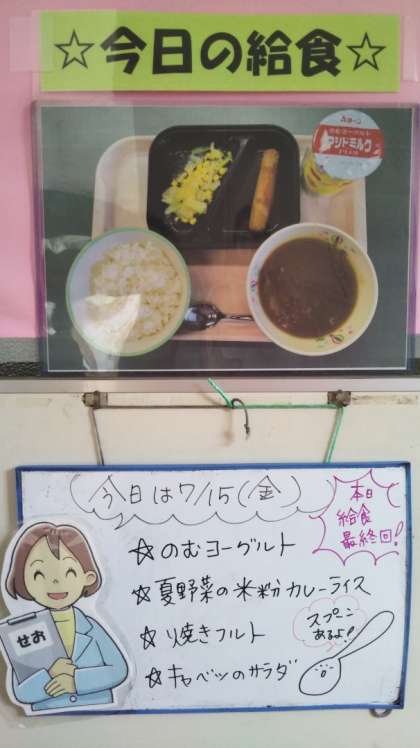 ☆今日の給食☆
マシドミルク
今日は7/15(金)
本日
給食
最終回!
☆のむヨーグルト
☆夏野菜の米粉カレーライス
☆焼きフルト
☆キャベツのサラダ
スプーン
あるよ!
せお